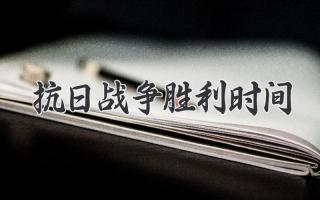 抗日战争胜利时间